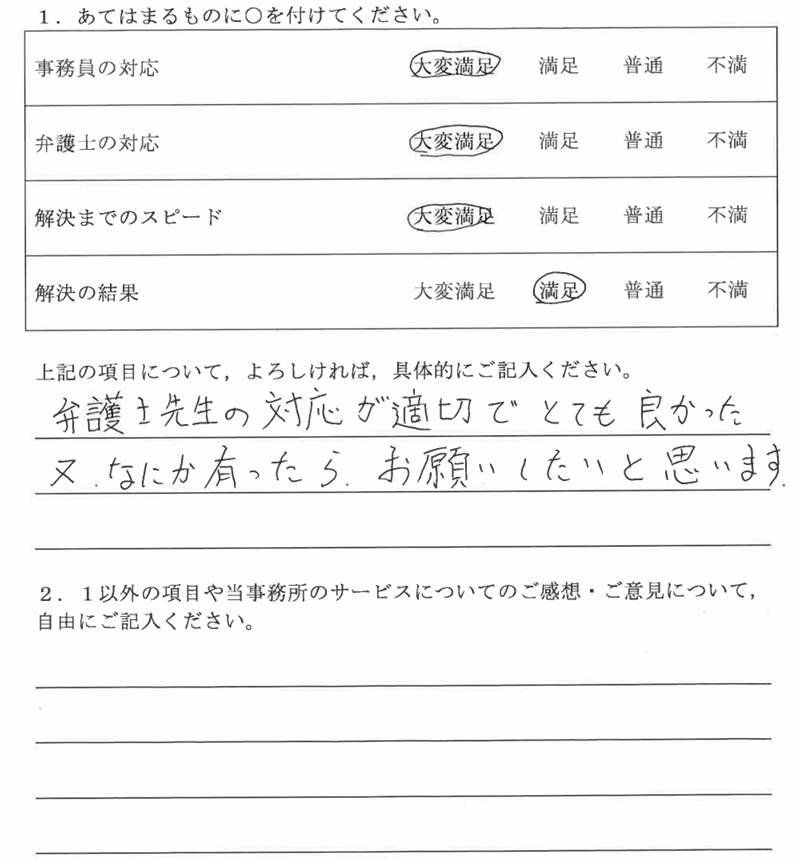 1．あてはまるものに〇を付けてください。
事務員の対応 大変満足 満足 普通 不満
弁護士の対応 大変満足 満足 普通 不満
解決までのスピード 大変満足 満足 普通 不満
解決の結果 大変満足 満足 普通 不満
上記の項目について，よろしければ，具体的にご記入ください。
弁護士先生の対応が適切でとても良かった
又、なにか有ったら、お願いしたいと思います。
2．1以外の項目や当事務所のサービスについてのご感想・ご意見について，
自由にご記入ください。